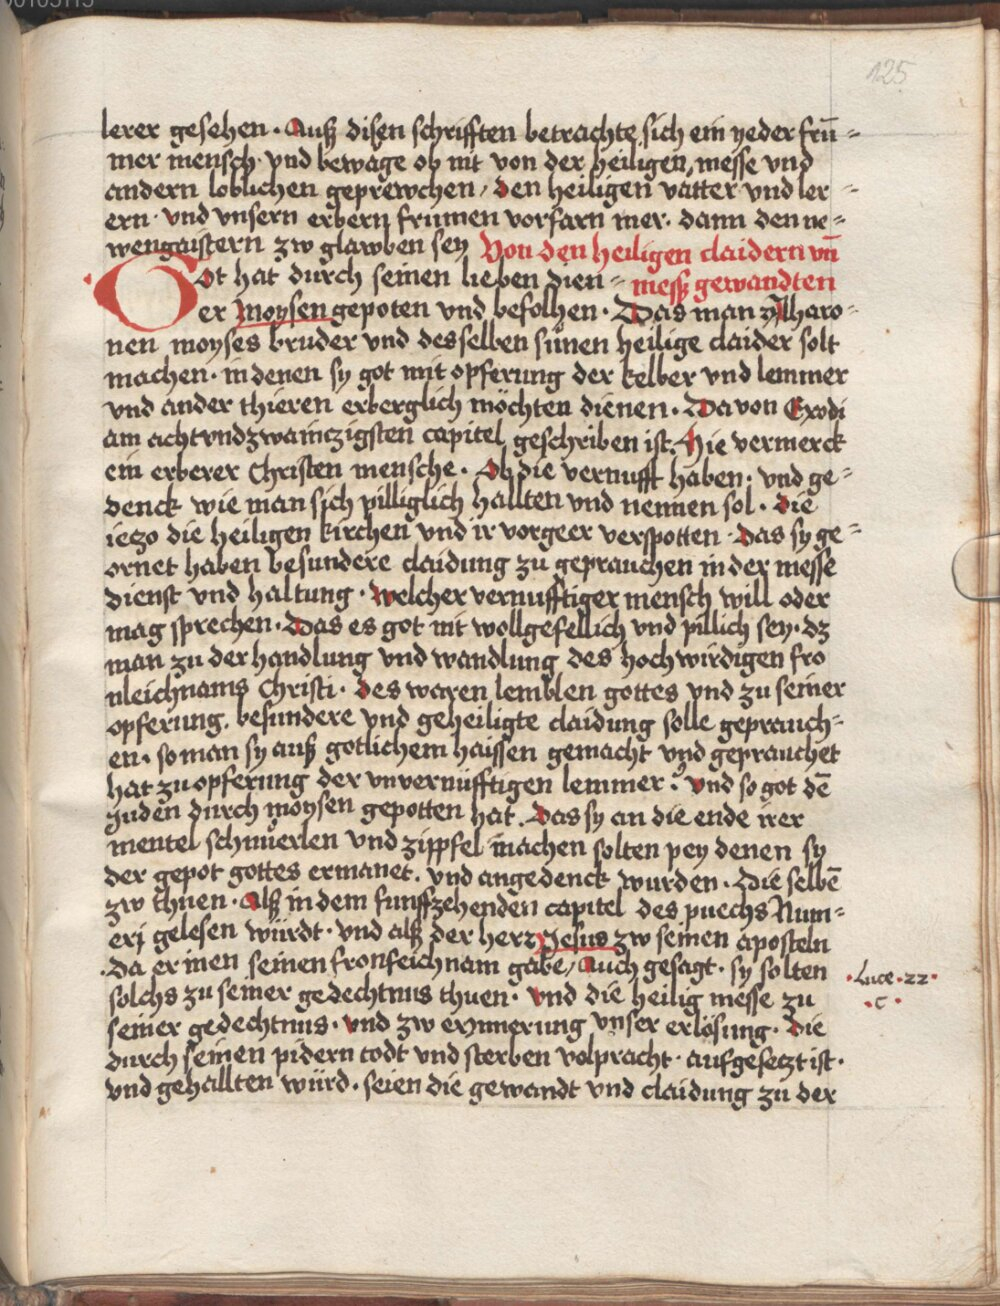 125
lerer gesehen · Auß disen schrifften betrachte sich ein yeder frū=
mer mensch · vnd bewage ob nit von der heiligen messe vnd
andern loblichen geprewchen / den heiligen vatter vnd ler=
ern · vnd vnsern erbern frumen vorfarn mer · dann den ne=
wengaistern zw glawben sey Von den heiligen claidern vn̄
Got hat durch seinen lieben dien= messz gewandten
er moysen gepoten vnd befolhen · Das man Aharo=
nen moyses bruder vnd desselben sünen heilige claider solt
machen · in denen sy got mit opferung der kelber vnd lemmer
vnd ander thieren erberglich möchten dienen · Davon Exodi
am achtvndzwainczigsten capitel geschriben ist. Hie vermerck
ein erberer Christen mensche · Ob die vernufft haben · vnd ge=
denck wie man sich pilliglich hallten vnd nennen sol · die
ieczo die heiligen kirchen vnd ir vorgeer verspotten · das sy ge=
ornet haben besundere claidung zu geprauchen in der messe
dienst vnd haltung · welcher vernufftiger mensch will oder
mag sprechen · Das es got nit wollgefellich vnd pillich sey · dz
man zu der handlung vnd wandlung des hochwirdigen fro
nleichnams Christi · des waren lemblen gottes vnd zu seiner
opferung. besundere vnd geheiligte claidung solle geprauch=
en · so man sy auß gotlichem haissen gemacht vnd geprauchet
hat zu opferung der vnvernufftigen lemmer? vnd so got dē
Juden durch moysen gepotten hat. Das sy an die ende irer
mentel schnüerlen vnd zippfel machen solten pey denen sy
der gepot gottes ermanet. vnd angedenck wurden · Die selbē
zw thuen · Alß in dem funffzehenden capitel des puechs Num=
erj gelesen würdt · vnd alß der herz Jesus zw seinen aposteln
da er inen seinen fronleichnam gabe / Auch gesagt · sy solten
·Luce · 22·
· c ·
solchs zu seiner gedechtnus thuen · vnd die heilig messe zu
seiner gedechtnus · vnd zw erynnerung vnser erlösung · die
durch seinen pidern todt vnd sterben volpracht · aufgesetzt ist ·
vnd gehallten würd · seien die gewandt vnd claidung zu der